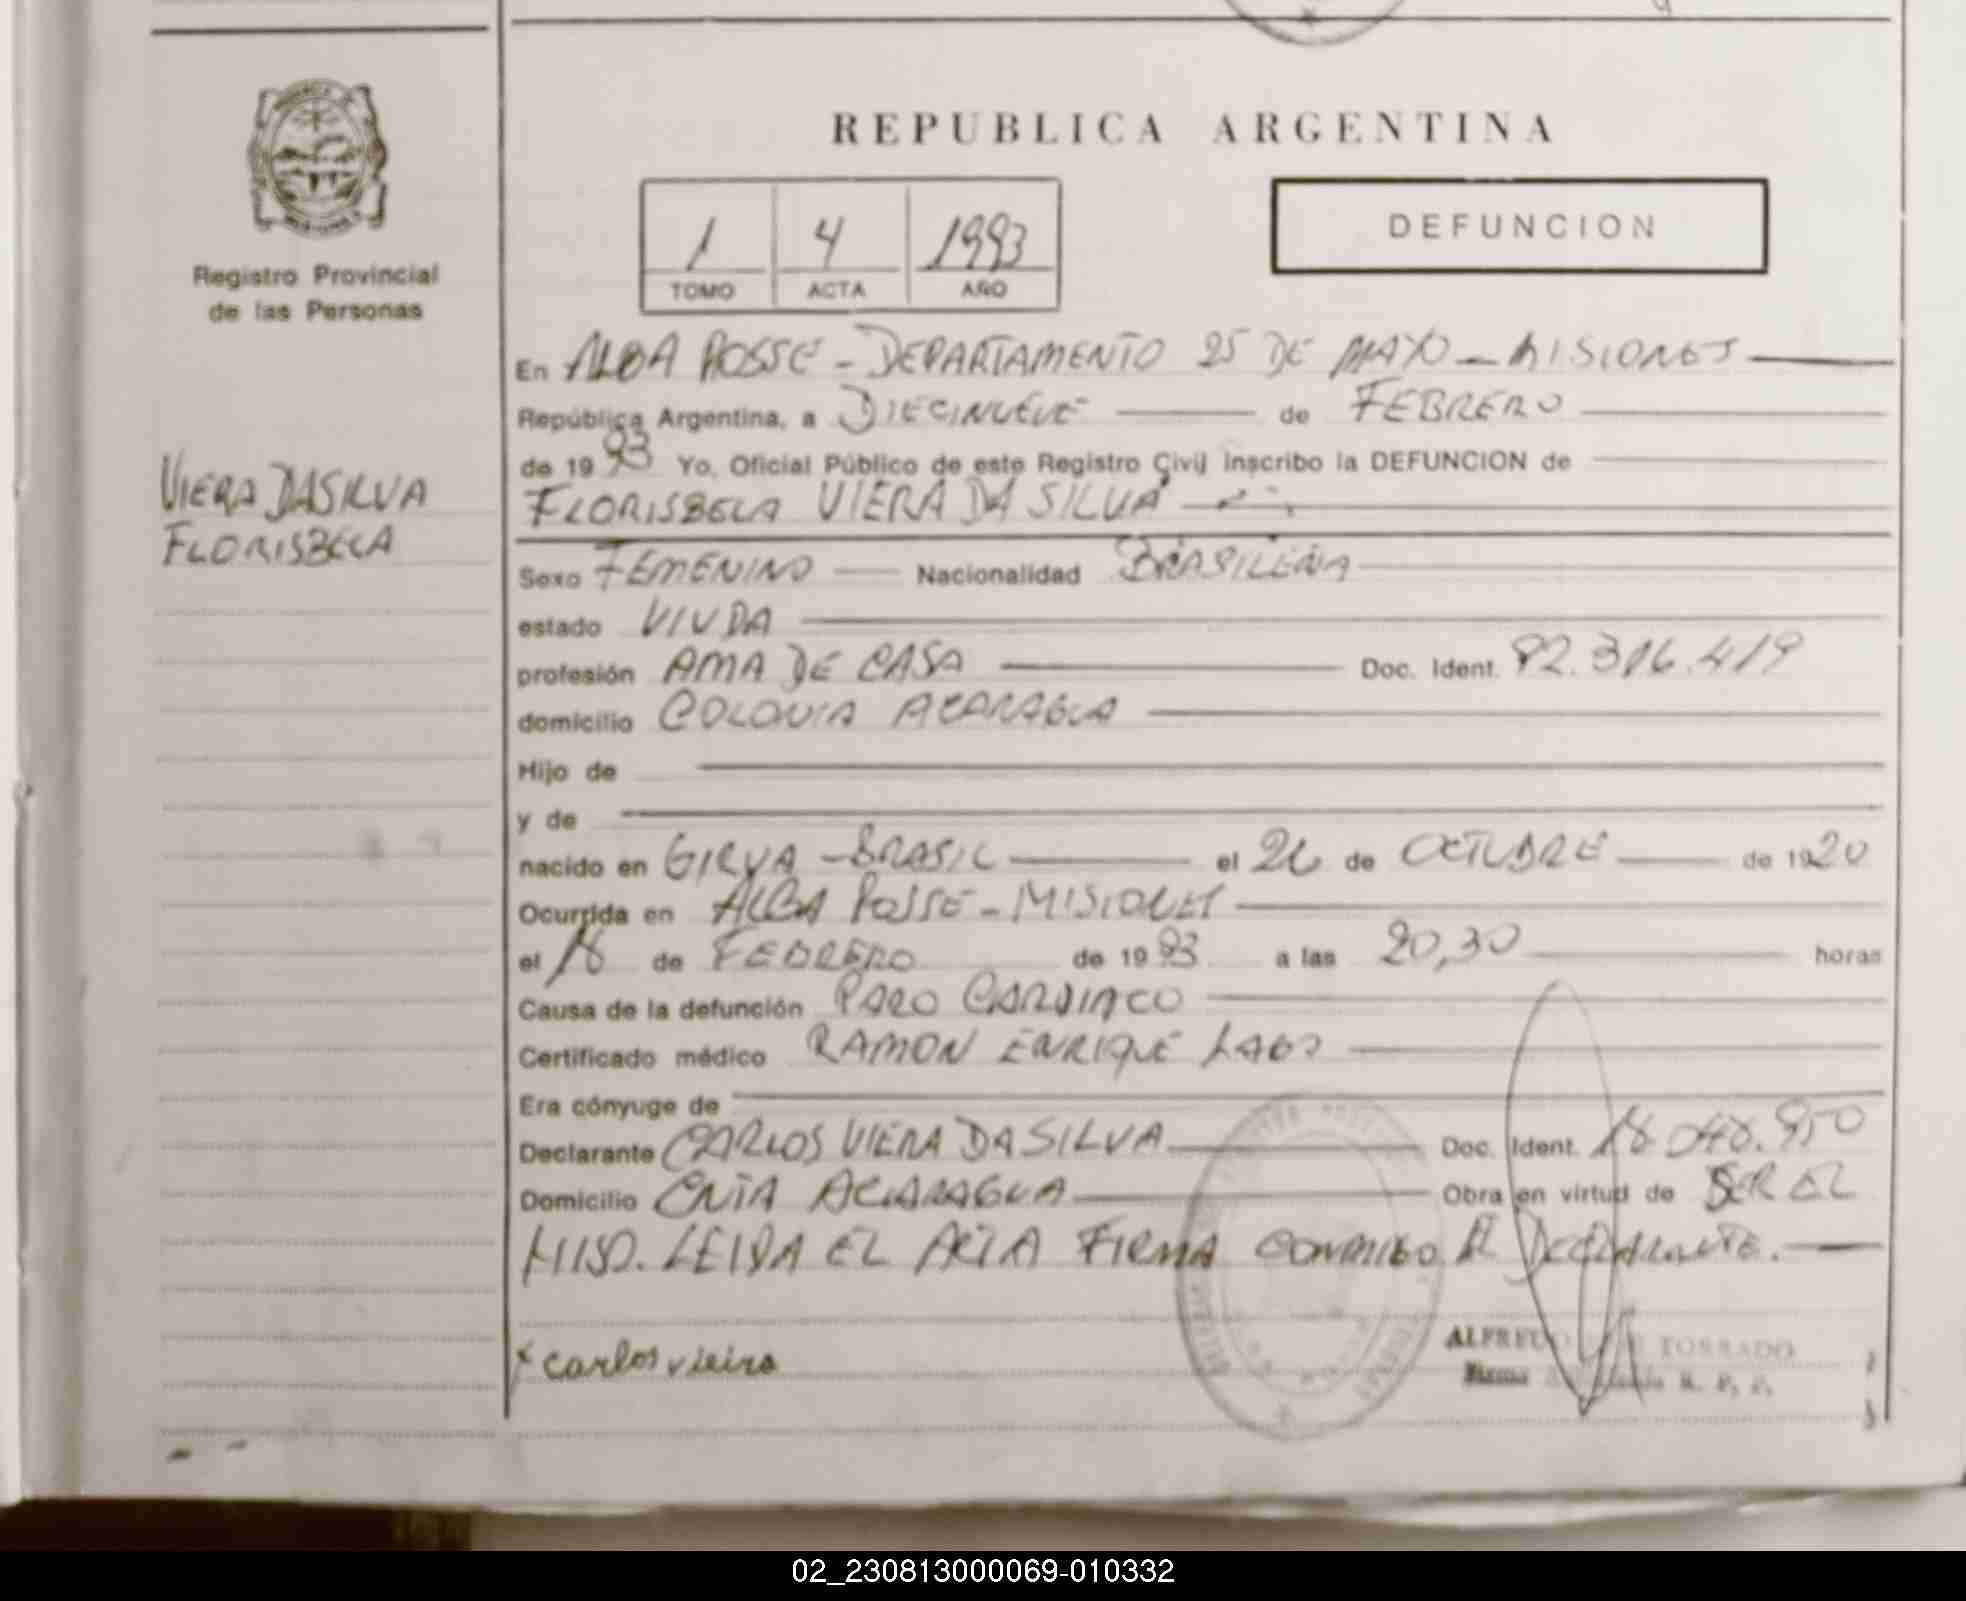 REPUBLICA ARGENTINA
DEFUNCION
1 4 1993
TOMO ACTA AÑO
Registro Provincial
de las Personas
VIERA DA SILVA
FLORISBELA
En ALBA POSSE - DEPARTAMENTO 25 DE MAYO - MISIONES
República Argentina, a DIECINUEVE de FEBRERO
de 1993 Yo, Oficial Público de este Registro Civil inscribo la DEFUNCION de
FLORISBELA VIERA DA SILVA
Sexo FEMENINO Nacionalidad BRASILEÑA
estado VIUDA
profesión AMA DE CASA Doc. Ident. 92.316.419
domicilio COLONIA ACARAGUA
Hijo de
y de
nacido en GIRUA - BRASIL el 26 de OCTUBRE de 1920
Ocurrida en ALBA POSSE - MISIONES
el 18 de FEBRERO de 1993 a las 20,30 horas
Causa de la defunción PARO CARDIACO
Certificado médico RAMON ENRIQUE
Era cónyuge de
Declarante CARLOS VIERA DA SILVA Doc. Ident.
Domicilio CNIA ACARAGUA Obra en virtud de SER EL
HIJO. LEIDA EL ACTA FIRMA CONMIGO EL DECLARANTE.
x carlos vieira
ALFREDO TORRADO
R. P. P.
02_230813000069-010332